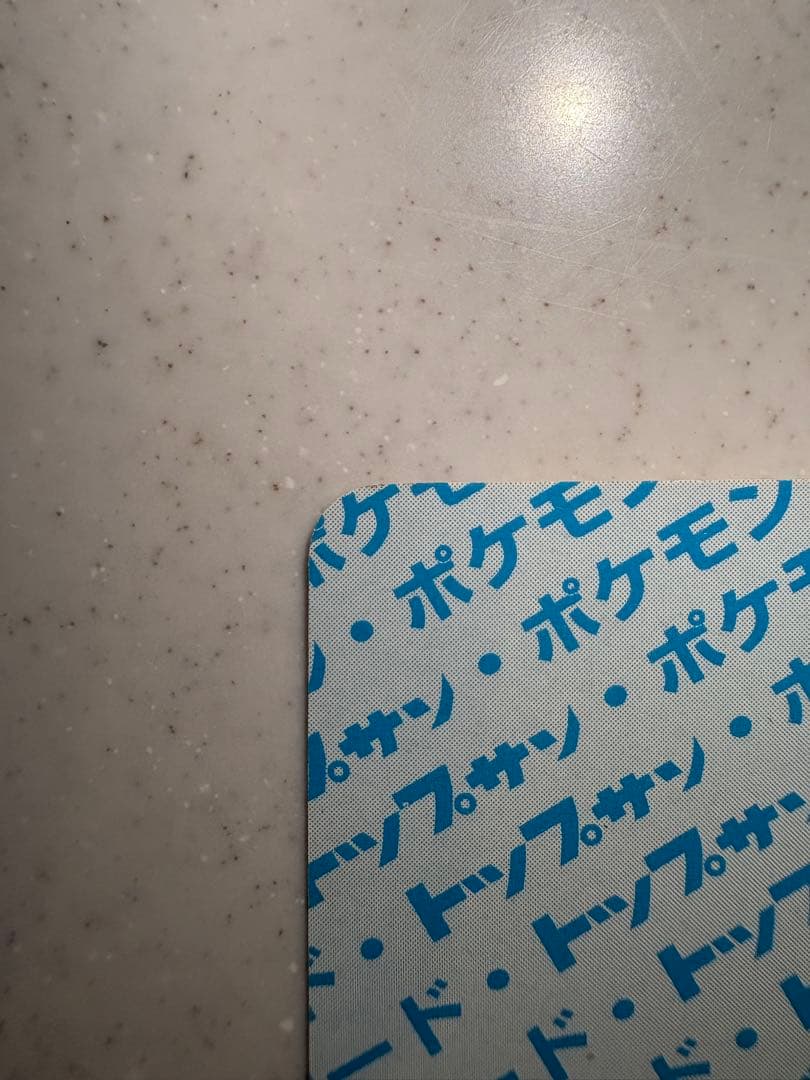 ポケモ
ン・ポケモン
プサン・ポケモン
トップサン・ポケモ
ド・トップサン・ポ
ード・トップサン
ド・トップ
ド・ト